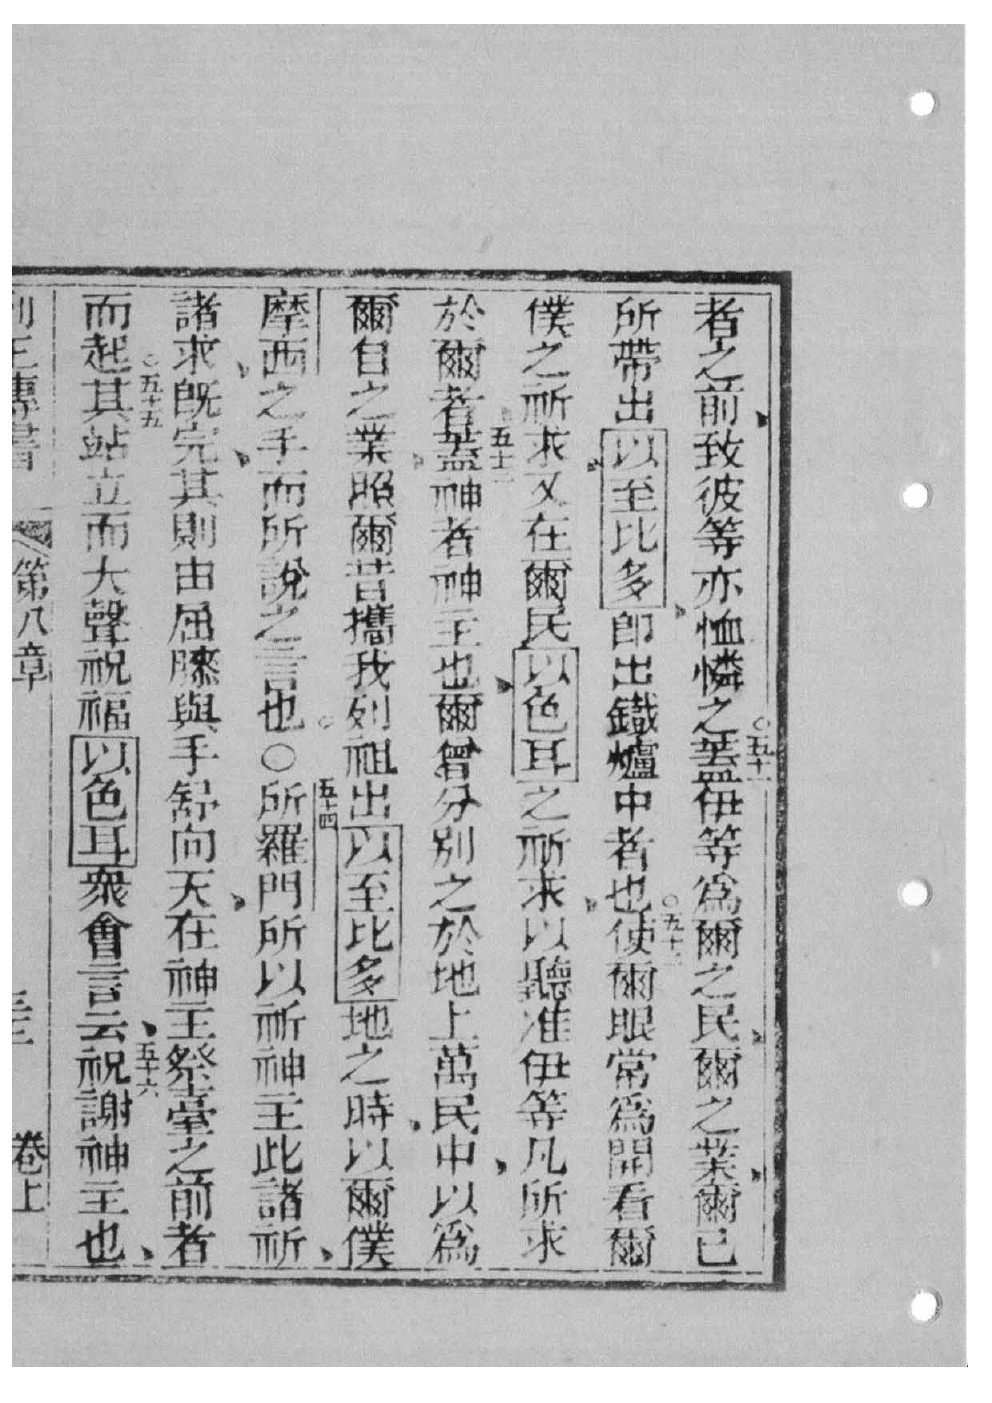 者之前致彼等亦恤憐之蓋伊等爲爾之民爾之業爾已
五十一
所帶出以至比多卽出鐵爐中者也使爾眼常爲開看爾
五十二
僕之祈求又在爾民以色耳之祈求以聽准伊等凡所求
於爾者蓋神者神主也爾曾分別之於地上萬民中以爲
五十三
爾自之業照爾昔攜我列祖出以至比多地之時以爾僕
摩西之手而所說之言也〇所羅門所以祈神主此諸祈
五十四
諸求旣完其則由屈膝與手舒向天在神主祭臺之前者
而起其站立而大聲祝福以色耳衆會言云祝謝神主也
五十五
五十六
列王傳書 第八章 卷上